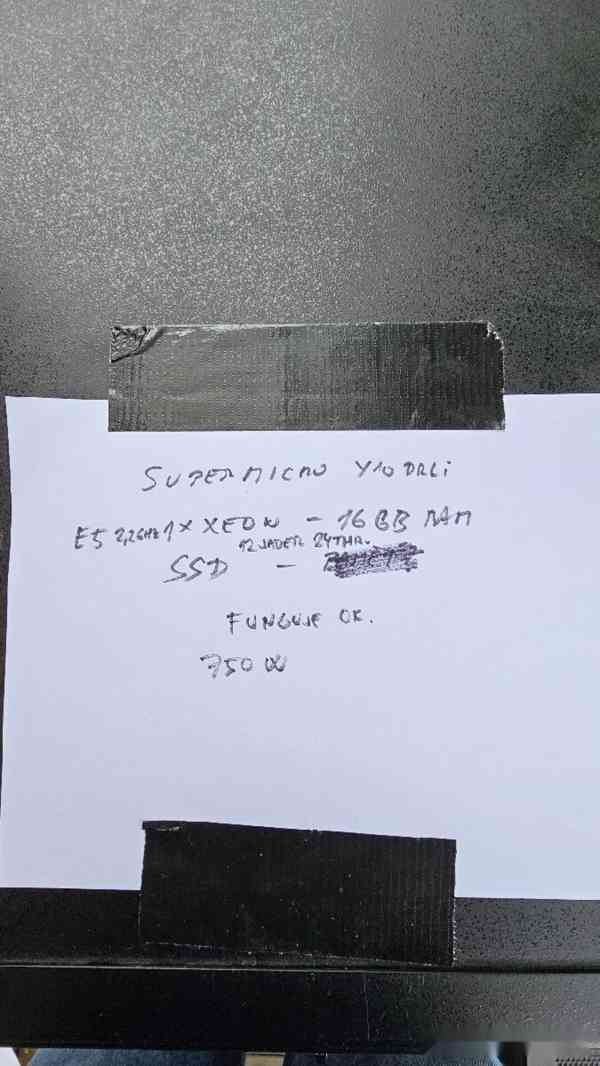 SUPERMICRO X10DRLi
E5 2,2GHz 1x XEON - 16 GB RAM
12 JADER 24THR.
SSD -
FUNGUJE OK.
750 W